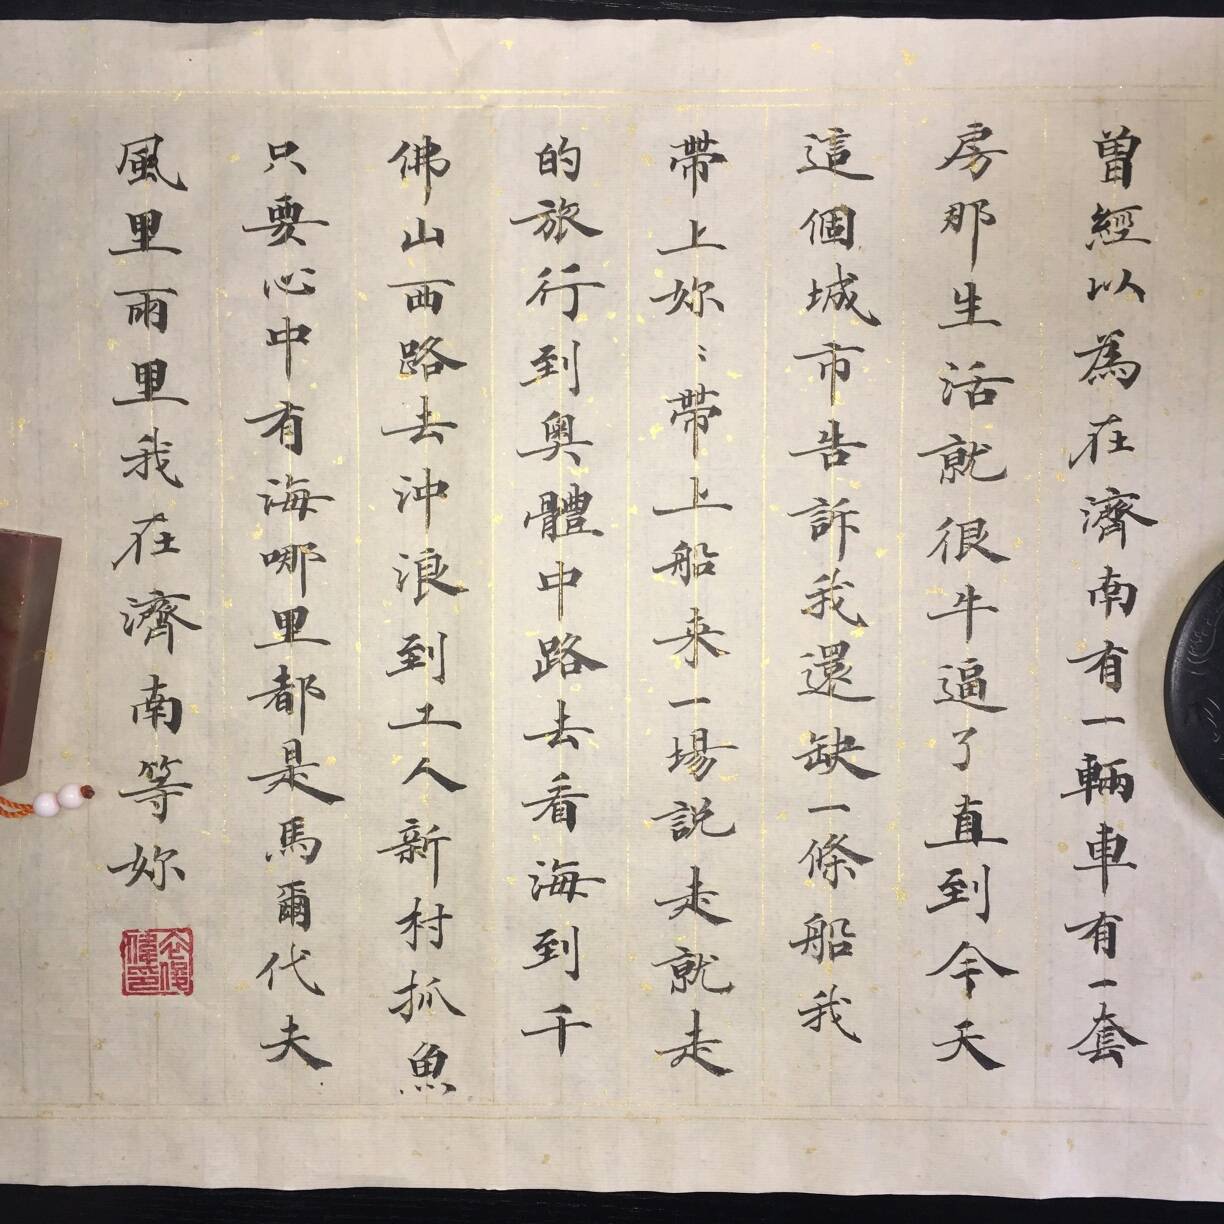 曾經以為在濟南有一輛車有一套
房那生活就很牛逼了直到今天
這個城市告訴我還缺一條船我
帶上妳〻帶上船来一場説走就走
的旅行到奥體中路去看海到千
佛山西路去沖浪到工人新村抓魚
只要心中有海哪里都是馬爾代夫
風里雨里我在濟南等妳